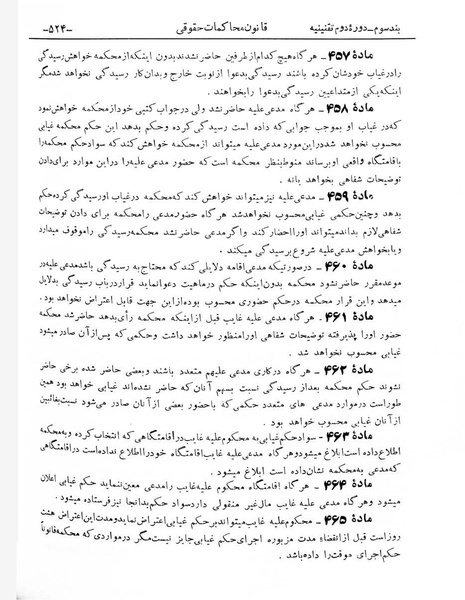 بندسوم – دورهٔ دوم تقنینیه قانون محاکمات حقوقی -۵۲۴-
مادهٔ ۴۵۷ – هرگاه هیچ کدام از طرفین حاضر نشدند بدون اینکه از محکمه خواهش رسیدگی
را در غیاب خودشان کرده باشند رسیدگی بدعوا از نوبت خارج و بدان کار رسیدگی نخواهد شد مگر
اینکه یکی از متداعیین رسیدگی بدعوا را بخواهند.
مادهٔ ۴۵۸ – هرگاه مدعی علیه حاضر نشد ولی در جواب کتبی خود از محکمه خواهش نمود
که در غیاب او بموجب جوابی که داده است رسیدگی کرده و حکم بدهد این حکم محکمه غیابی
محسوب نخواهد شد در این مورد مدعی علیه میتواند از محکمه خواهش کند که سواد حکم محکمه را
باقامتگاه واقعی او برساند منوط بنظر محکمه است که حضور مدعی علیه را در این موارد برای دادن
توضیحات شفاهی بخواهد یا نه.
مادهٔ ۴۵۹ – مدعی علیه نیز میتواند خواهش کند که محکمه در غیاب او رسیدگی کرده حکم
بدهد و چنین حکمی غیابی محسوب نخواهد شد هرگاه حضور مدعی را محکمه برای دادن توضیحات
شفاهی لازم بداند میتواند او را احضار کند و اگر مدعی حاضر نشد محکمه رسیدگی را موقوف میدارد
و یا بخواهش مدعی علیه شروع برسیدگی میکند.
مادهٔ ۴۶۰ – در صورتیکه مدعی اقامه دلایلی کند که محتاج به رسیدگی باشد مدعی علیه در
موعد مقرر حاضر نشود محکمه بدون اینکه حکم در ماهیت دعوا نماید قرار در باب رسیدگی بدلایل
میدهد و این قرار محکمه در حکم حضوری بوده از این جهت قابل اعتراض نخواهد بود.
مادهٔ ۴۶۱ – هرگاه مدعی علیه غایب قبل از اینکه محکمه رأی بدهد حاضر شد
حضور او را پذیرفته توضیحات شفاهی او را منظور خواهد داشت و حکمی که پس از آن صادر میشود
غیابی محسوب نخواهد شد.
مادهٔ ۴۶۲ – هرگاه در کاری مدعی علیهم متعدد باشند و بعضی حاضر شده برخی حاضر
نشوند حکم محکمه بعد از رسیدگی نسبت بسهم آنان که حاضر نشده‌اند غیابی خواهد بود همین
طور است در موارد مدعی های متعدد حکمی که باحضور بعضی از آنان صادر می‌شود نسبت بغائبین
از آنان غیابی محسوب خواهد بود.
مادهٔ ۴۶۳ – سواد حکم غیابی به محکوم علیه غایب در اقامتگاهی که انتخاب کرده و بمحکمه
اطلاع داده است ابلاغ میشود و هرگاه مدعی علیه غایب اقامتگاه خود را اطلاع نداده است در اقامتگاهی
که مدعی به محکمه نشان داده است ابلاغ میشود.
مادهٔ ۴۶۴ – هرگاه اقامتگاه محکوم علیه غایب را مدعی معین ننماید حکم غیابی اعلان
میشود و هرگاه مدعی علیه غایب مال غیر منقولی دارد سواد حکم بدانجا نیز فرستاده میشود.
مادهٔ ۴۶۵ – محکوم علیه غایب میتواند بر حکم غیابی اعتراض نماید و مدت این اعتراض هشت
روز است قبل از انقضاء مدت مزبوره اجرای حکم غیابی جایز نیست مگر در مواردی که محکمه قانوناً
حکم اجرای موقت را داده باشد.